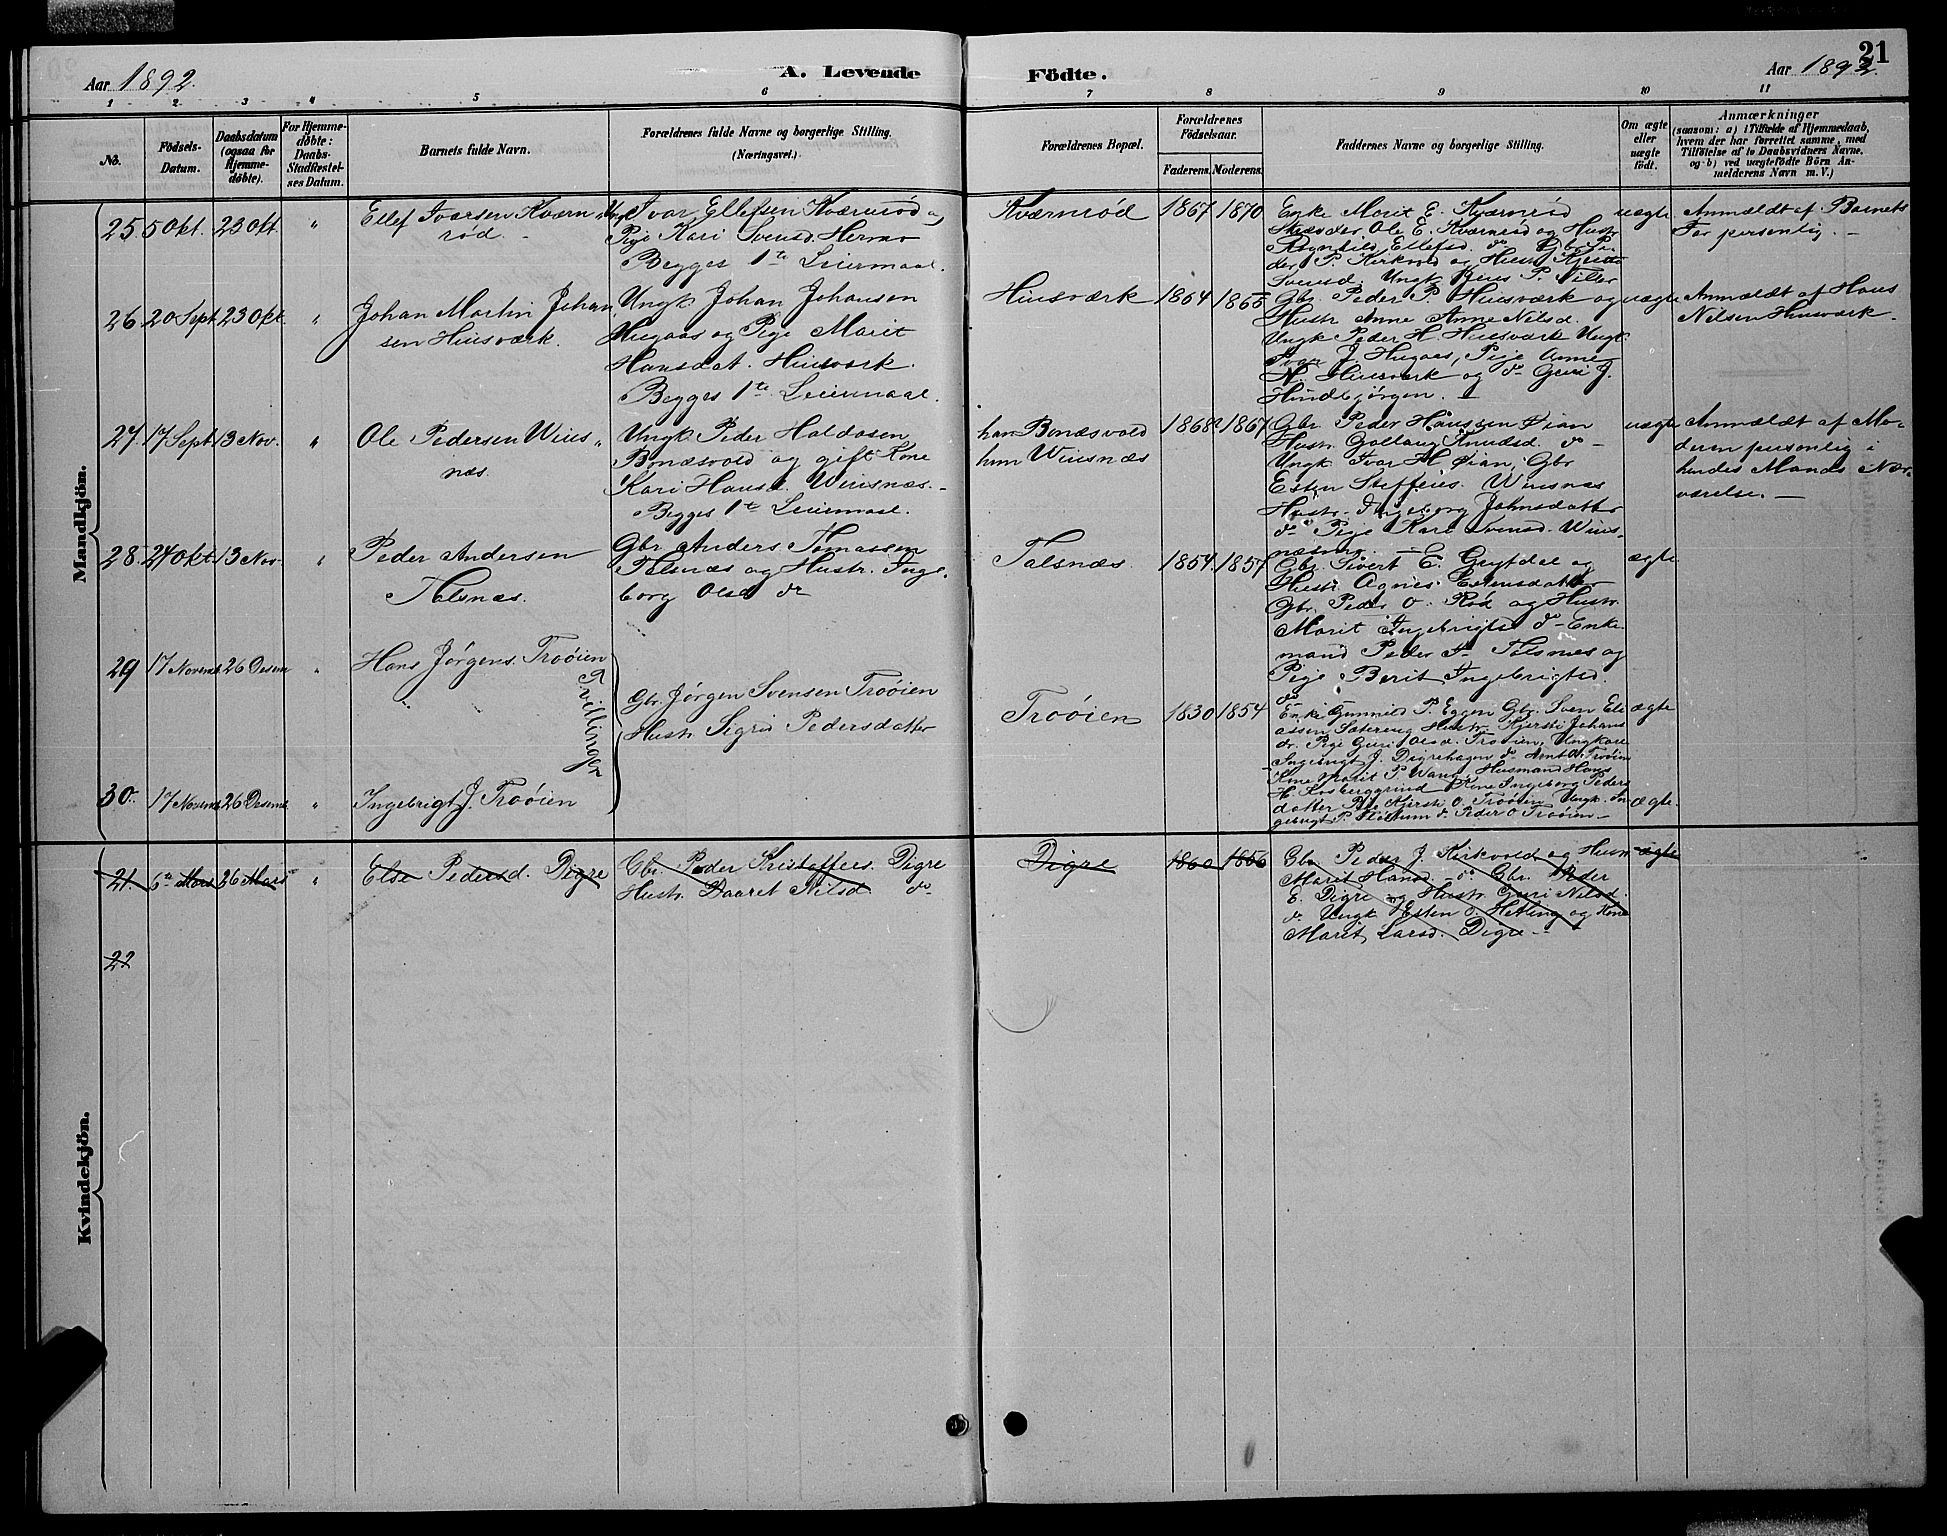 21
Aar 1892.
A. Levende
Födte.
Aar 1892.
1 2 3 4 5 6 7 8 9 10 11
No.
Födsels-
Datum.
Daabsdatum
(ogsaa for
Hjemme-
döbte).
For Hjemme-
döbte:
Daabs-
Stadfæstel-
ses Datum.
Barnets fulde Navn.
Forældrenes fulde Navne og borgerlige Stilling.
(Næringsvei.)
Forældrenes Bopæl.
Forældrenes
Födselsaar.
Faderens. Moderens.
Faddernes Navne og borgerlige Stilling.
Om ægte
eller
uægte
födt.
Anmærkninger
(saasom: a) i Tilfælde af Hjemmedaab,
hvem der har forrettet samme, med
Tilföielse af to Daabsvidners Navne,
og b) ved uægtefödte Börn An-
melderens Navn m. V.)
Mandkjön.
25. 5 Okt. 23 Okt. "
Ellef Ivarsen Kværn
rød.
Ungk. Ivar Ellefsen Kværnrød og
Pige Kari Svensd. Hermo
Begges 1te Leiermaal.
Kværnrød
1867 1870
Enke Marit E. Kværnrød
Ole E. Kværnrød og Hustr
Ragnhild Ellefsd. do Gbr. Pe-
der P. Kirkvold og Hustr
Svensd. Ungk. Jens P. Tiller
uægte
Anmældt af Barnets
Far personlig. —
26. 20 Sept. 23 Okt. "
Johan Martin Johan
sen Huusværk.
Ungk. Johan Johansen
Hugaas og Pige Marit
Hansdat. Huusværk.
Begges 1te Leiermaal.
Huusværk
1864 1868
Gbr. Peder P. Huusværk og
Hustr Anne Anne Nilsd.
Ungk Peder H. Huusværk Ungk
Ivar J. Hugaas, Pige Anne
N. Huusværk og do Guri J.
Hindbjørgen.
uægte
Anmældt af Hans
Nilsen Huusværk.
27. 17 Sept. 13 Nov. "
Ole Pedersen Wiis
næs.
Ungk. Peder Haldosen
Bonæsvold og gift Kone
Kari Hansd. Wiisnæs.
Begges 1te Leiermaal.
han Bonæsvold
hun Wiisnæs
1868 1867
Gbr Peder Hanssen Øian
Hustr. Gollaug Knudsd. do
Ungk Ivar H. Øian, Gbr
Esten Steffens. Wiisnæs
Hustr. Ingeborg Johnsdatter
do Pige Kari Svensd. Wiis-
uægte
Anmældt af Mo-
deren personlig i
hendes Mands Nær-
værelse. —
28. 24 Okt. 13 Nov. "
Peder Andersen
Talsnæs.
Gbr Anders Tomassen
Talsnæs og Hustr. Inge-
borg Olsd do
Talsnæs.
1854. 1857
Gbr. Sivert E. Grytdal og
Hustr. Agnes Estensdatter
Gbr. Peder O. Rød og Hustr
Marit Ingebrigtsd do Enke
mand Peder Talsnæs og
Pige Berit Ingebrigtsd.
do
ægte
29 17 Novemb. 26 Desem "
Hans Jørgens. Trøøien
Tvillinger
Gbr. Jørgen Svensen Trøøien
Hustr. Sigrid Pedersdatter
Trøøien
1830 1854
Enke Gunnild P. Eggen Gbr. Sven Eli
assen Sætereng Hustr. Kjersti Johans
dr. Pige Guri Olsd. Trøøien, Ungkare
Ingebrigt J. Digrehagen do Arnt O. Trøøien
Kone Marit P. Wang, Husmand Hans
H. Kosberggrind Kone Ingeborg Peders
datter Pige Kjersti O. Trøøien Ungk. In
gebrigt P. do Peder O Trøøien—
ægte
30. 17 Novemb 26 Desemb "
Ingebrigt J. Trøøien
ægte.
Kvindekjön.
21 6te Mars 26 Mars "
Else Pedersd. Digre
Gbr. Peder Kristoffers. Digre
Hustr. Baaret Nilsd do
Digre
1860 1856
Gbr Peder J. Kirkvold og Hustr
Marit Hansd. do Gbr. Peder
E. Digre og Hustr. Guri Nilsd.
do Ungk Esten O. Hetling og Kone
Marit Larsd. Digre.
ægte
22